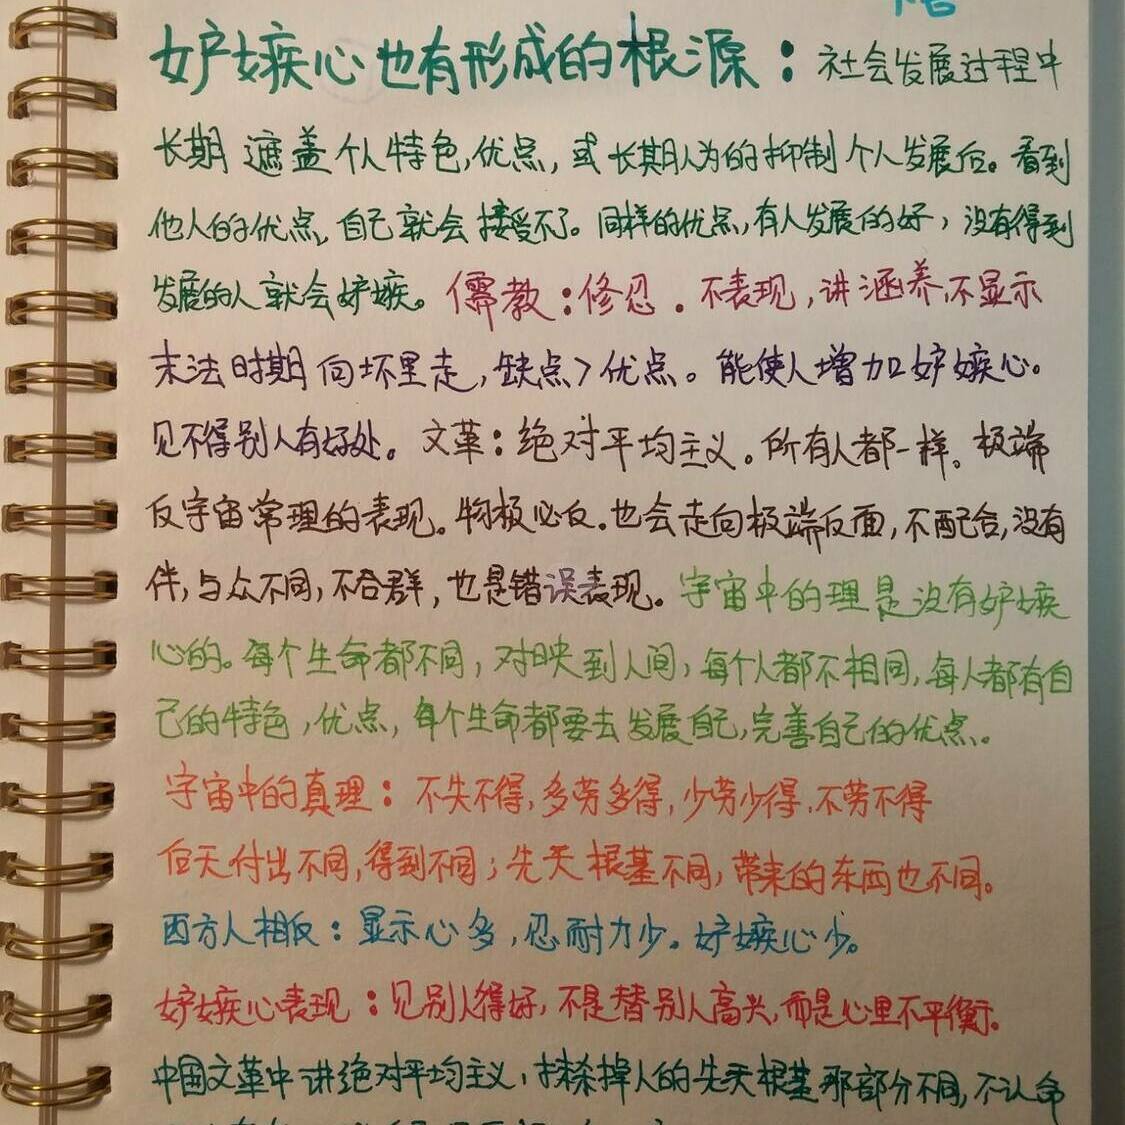 妒嫉心也有形成的根源：社会发展过程中
长期遮盖个人特色,优点,或长期人为的抑制个人发展后。看到
他人的优点,自己就会接受不了。同样的优点,有人发展的好,没有得到
发展的人就会妒嫉。儒教:修忍.不表现,讲涵养,不显示
末法时期向坏里走,缺点>优点。能使人增加妒嫉心。
见不得别人有好处。文革:绝对平均主义。所有人都一样。极端
反宇宙常理的表现。物极必反.也会走向极端反面,不配合,没有
伴,与众不同,不合群,也是错误表现。宇宙中的理是没有妒嫉
心的。每个生命都不同,对映到人间,每个人都不相同,每人都有自
己的特色,优点,每个生命都要去发展自己,完善自己的优点。
宇宙中的真理:不失不得,多劳多得,少劳少得.不劳不得
后天付出不同,得到不同;先天根基不同,带来的东西也不同。
西方人相反:显示心多,忍耐力少。妒嫉心少。
妒嫉心表现:见别人得好,不是替别人高兴,而是心里不平衡。
中国文革中讲绝对平均主义,抹杀掉人的先天根基那部分不同,不认命